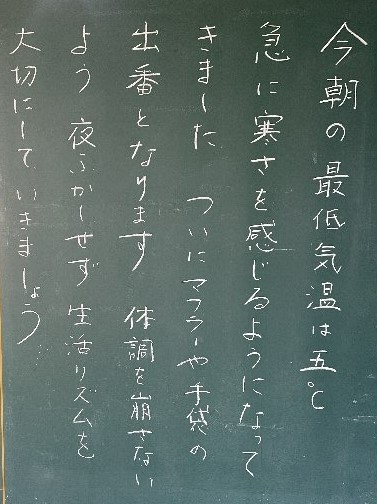 今朝の最低気温は五℃
急に寒さを感じるようになって
きました ついにマフラーや手袋の
出番となります 体調を崩さない
よう 夜ふかしせず 生活リズムを
大切にしていきましょう